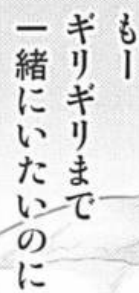 もー
ギリギリまで
一緒にいたいのに